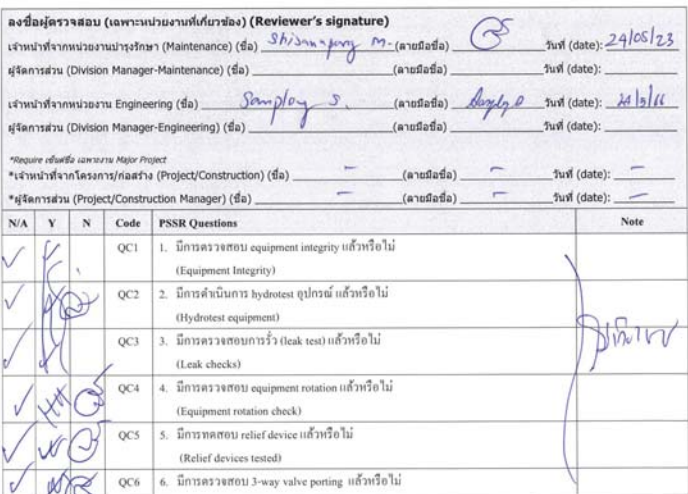 ลงชื่อผู้ตรวจสอบ (เฉพาะหน่วยงานที่เกี่ยวข้อง) (Reviewer's signature)
เจ้าหน้าที่จากหน่วยงานบำรุงรักษา (Maintenance) (ชื่อ) M. (ลายมือชื่อ) วันที่ (date): 24/05/23
ผู้จัดการส่วน (Division Manager-Maintenance) (ชื่อ) (ลายมือชื่อ) วันที่ (date):
เจ้าหน้าที่จากหน่วยงาน Engineering (ชื่อ) Samploy S. (ลายมือชื่อ) วันที่ (date):
ผู้จัดการส่วน (Division Manager-Engineering) (ชื่อ) (ลายมือชื่อ) วันที่ (date):
*Require เซ็นต์ชื่อ เฉพาะงาน Major Project
*เจ้าหน้าที่จากโครงการ/ก่อสร้าง (Project/Construction) (ชื่อ) - (ลายมือชื่อ) - วันที่ (date): -
*ผู้จัดการส่วน (Project/Construction Manager) (ชื่อ) - (ลายมือชื่อ) - วันที่ (date): -
N/A Y N Code PSSR Questions Note
QC1 1. มีการตรวจสอบ equipment integrity แล้วหรือไม่
(Equipment Integrity)
QC2 2. มีการดำเนินการ hydrotest อุปกรณ์ แล้วหรือไม่
(Hydrotest equipment)
QC3 3. มีการตรวจสอบการรั่ว (leak test) แล้วหรือไม่
(Leak checks)
QC4 4. มีการตรวจสอบ equipment rotation แล้วหรือไม่
(Equipment rotation check)
QC5 5. มีการทดสอบ relief device แล้วหรือไม่
(Relief devices tested)
QC6 6. มีการตรวจสอบ 3-way valve porting แล้วหรือไม่